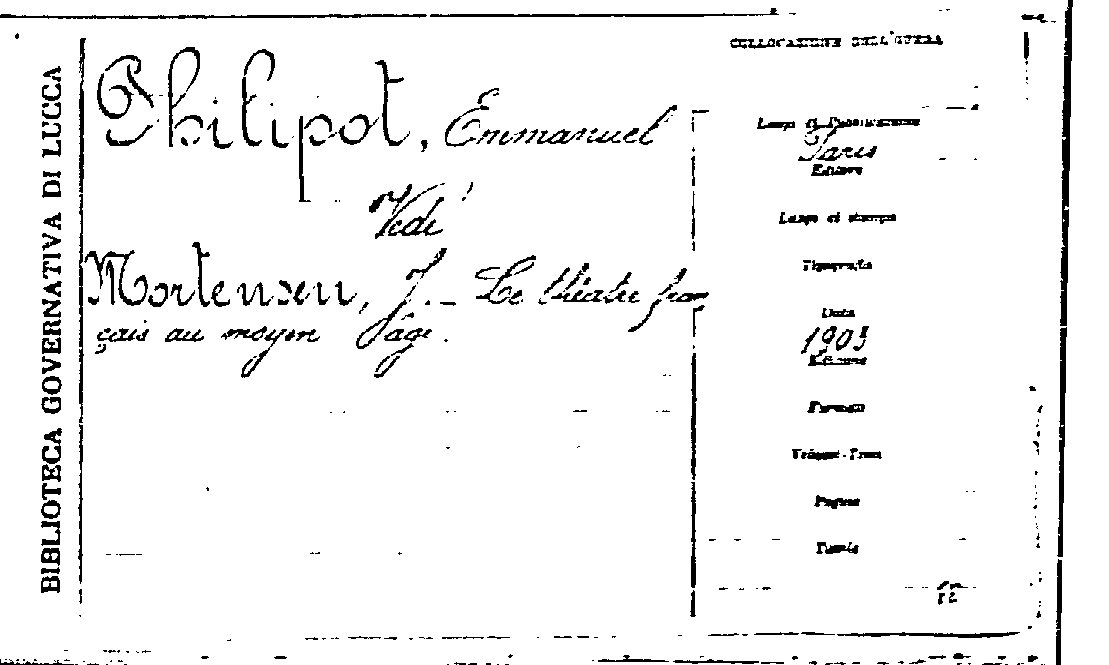 BIBLIOTECA GOVERNATIVA DI LUCCA
COLLOCAZIONE DELL'OPERA
Philipot, Emmanuel
Vedi
Mortensen, J. - Le théatre fran
çais au moyen âge.
Luogo di Pubblicazione
Paris
Editore
Luogo di stampa
Tipografia
Data
1903
Edizione
Formato
Volumi-Tomi
Pagine
Tavole